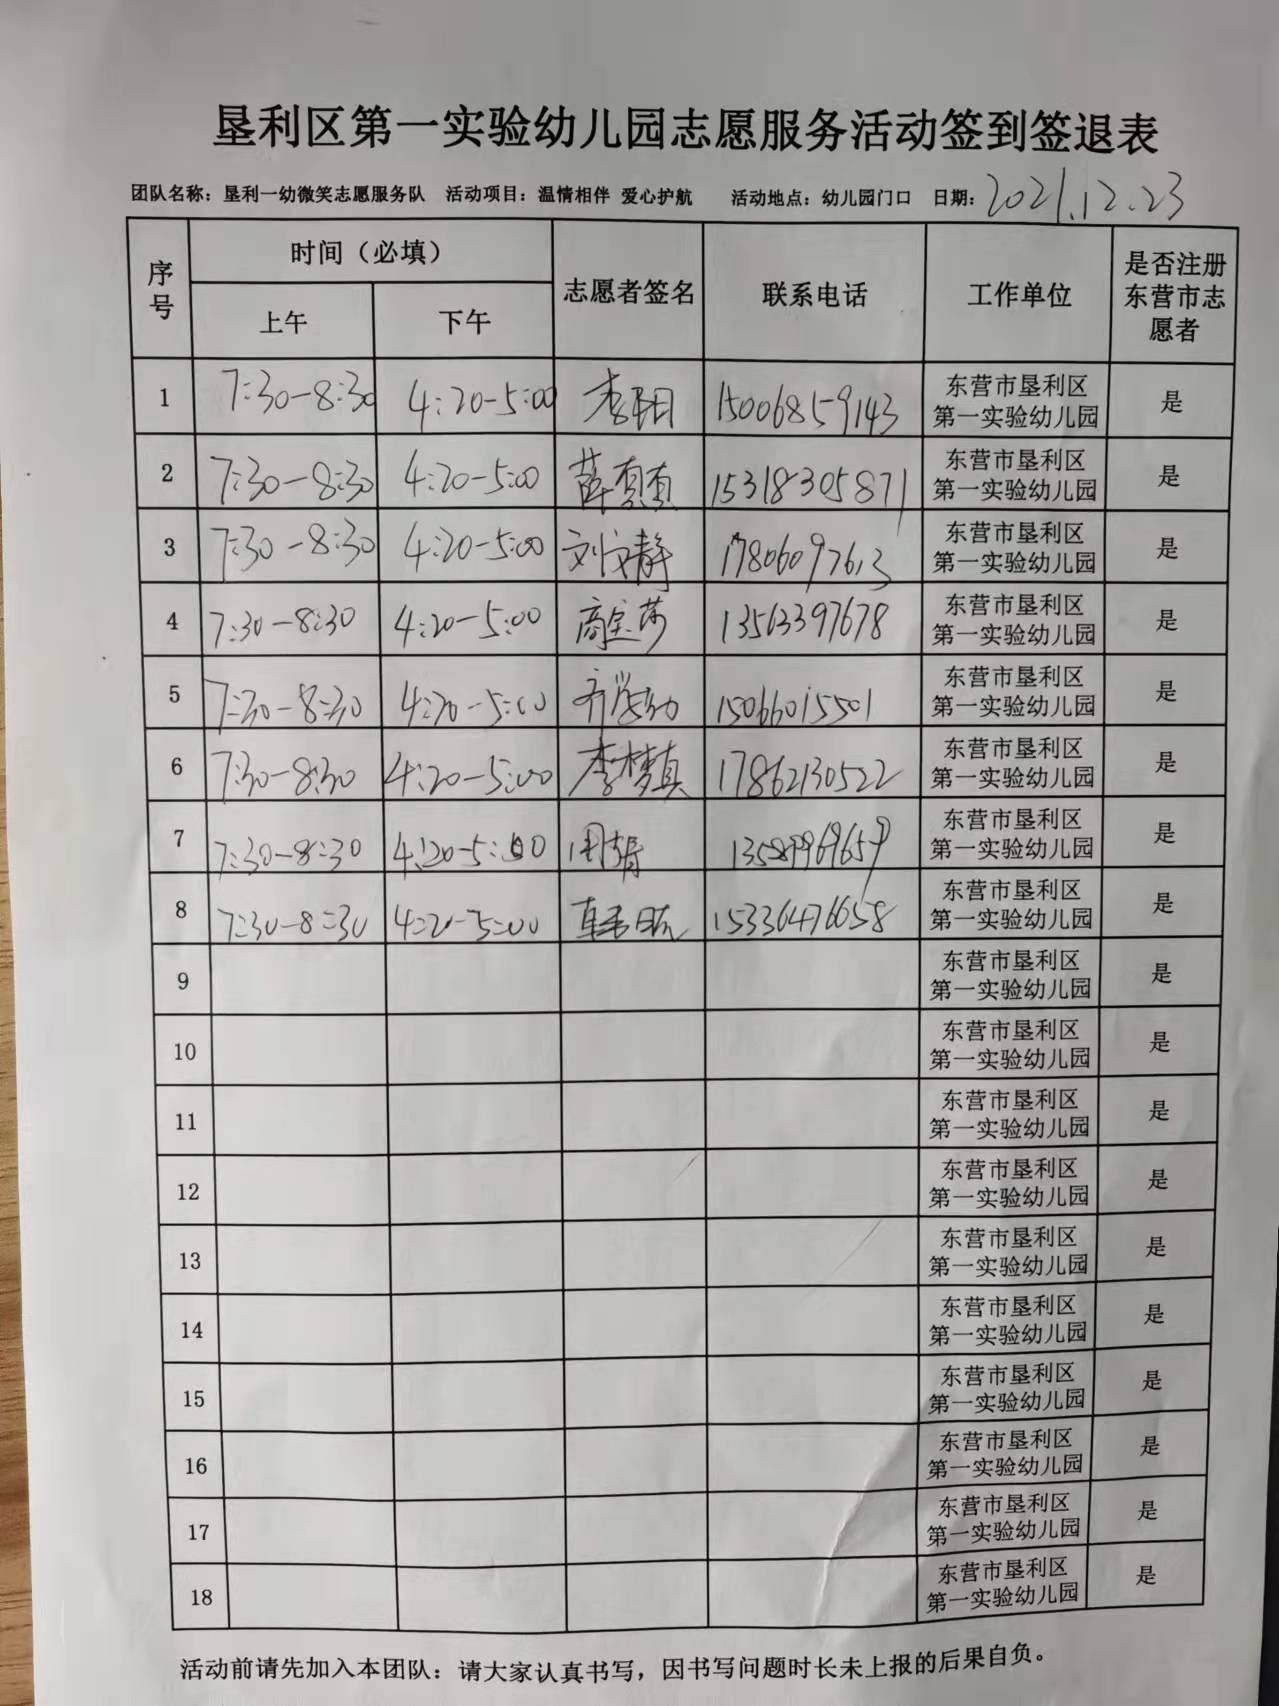 垦利区第一实验幼儿园志愿服务活动签到签退表
团队名称：垦利一幼微笑志愿服务队 活动项目：温情相伴 爱心护航 活动地点：幼儿园门口 日期：2021.12.23
序号 时间（必填） 志愿者签名 联系电话 工作单位 是否注册东营市志愿者
上午 下午
1 7:30-8:30 4:20-5:00 李阳 15006859143 东营市垦利区第一实验幼儿园 是
2 7:30-8:30 4:20-5:00 薛真真 15318305871 东营市垦利区第一实验幼儿园 是
3 7:30-8:30 4:20-5:00 刘文静 17806097613 东营市垦利区第一实验幼儿园 是
4 7:30-8:30 4:20-5:00 商宝莎 13563397678 东营市垦利区第一实验幼儿园 是
5 7:30-8:30 4:20-5:00 15066015501 东营市垦利区第一实验幼儿园 是
6 7:30-8:30 4:20-5:00 李梦真 17862130522 东营市垦利区第一实验幼儿园 是
7 7:30-8:30 4:20-5:00 13589969659 东营市垦利区第一实验幼儿园 是
8 7:30-8:30 4:20-5:00 15336476658 东营市垦利区第一实验幼儿园 是
9 东营市垦利区第一实验幼儿园 是
10 东营市垦利区第一实验幼儿园 是
11 东营市垦利区第一实验幼儿园 是
12 东营市垦利区第一实验幼儿园 是
13 东营市垦利区第一实验幼儿园 是
14 东营市垦利区第一实验幼儿园 是
15 东营市垦利区第一实验幼儿园 是
16 东营市垦利区第一实验幼儿园 是
17 东营市垦利区第一实验幼儿园 是
18 东营市垦利区第一实验幼儿园 是
活动前请先加入本团队：请大家认真书写，因书写问题时长未上报的后果自负。